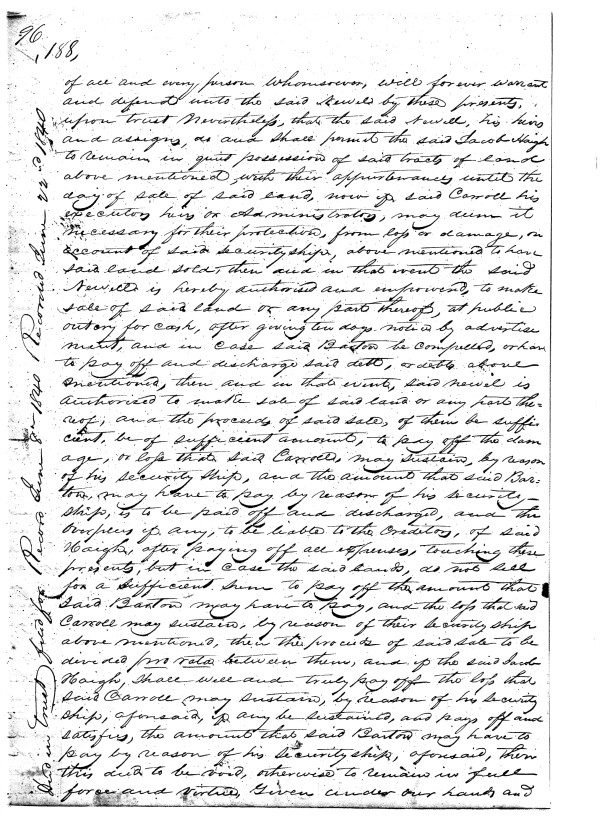 96
188,
of all and every, person whomsoever, will forever warrant
and defend unto the said Newels by these presents,
upon trust Nevertheless, that the said Newell, his heirs
and assigns, do and shall permit the said Jacob Haigh
to remain in quiet possession of said tracts of land
above mentioned with their appurtenances until the
day of sale of said land, now if said Carroll his
executors heirs or Administrators, may deem it
necessary for their protection, from loss or damage, on
account of said securityship, above mentioned to have
said land sold, then and in that event the said
Newell is hereby authorised and empowered, to make
sale of said land or any part thereof, at public
outcry for cash, after giving ten days notice by advertise
ment, and in case said Barton be compelled, or have
to pay off and discharge said debt, or debts above
mentioned, then and in that event, said Newel is
authorised to make sale of said land or any part the-
reof, and the proceeds of said sale, of them be suffi-
cient, be of sufficient amount, to pay off the dam
age, or loss that said Carroll, may sustain, by reason
of his security ship, and the amount that said Bar-
ton, may have to pay by reason of his security-
ship, is to be paid off and discharged, and the
overplus if any, to be liable to the Creditors, of said
Haigh, after paying off all expenses, touching these
presents, but in case the said lands, do not sell
for a sufficient sum to pay off the amount that
said Barton may have to pay, and the loss that said
Carroll may sustain, by reason of their Security ship
above mentioned, then the proceeds of said sale to be
divided pro rata between them, and if the said Jacob
Haigh, shall well and truly pay off the loss that
said Carroll may sustain, by reason of his security
ship, aforesaid, if any be sustained, and pays off and
satisfies, the amount that said Barton may have to
pay by reason of his security ship, aforesaid, then
this deed to be void, otherwise to remain in full
force and virtue, Given under our hands and
Deed in trust for June 8th 1840 Recorded June 22nd 1840